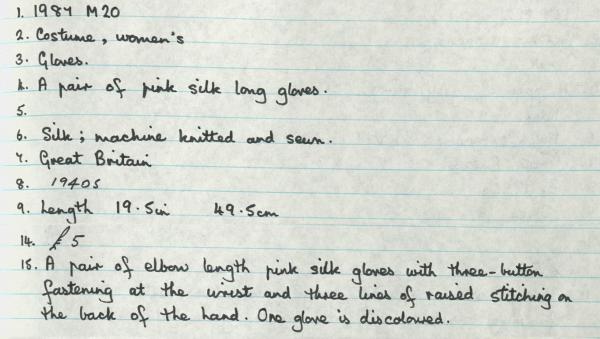 1. 1987 M20
2. Costume, women's
3. Gloves.
4. A pair of pink silk long gloves.
5.
6. Silk; machine knitted and sewn.
7. Great Britain
8. 1940s
9. Length 19.5in 49.5cm
14. £5
15. A pair of elbow length pink silk gloves with three-button
fastening at the wrist and three lines of raised stitching on
the back of the hand. One glove is discoloured.